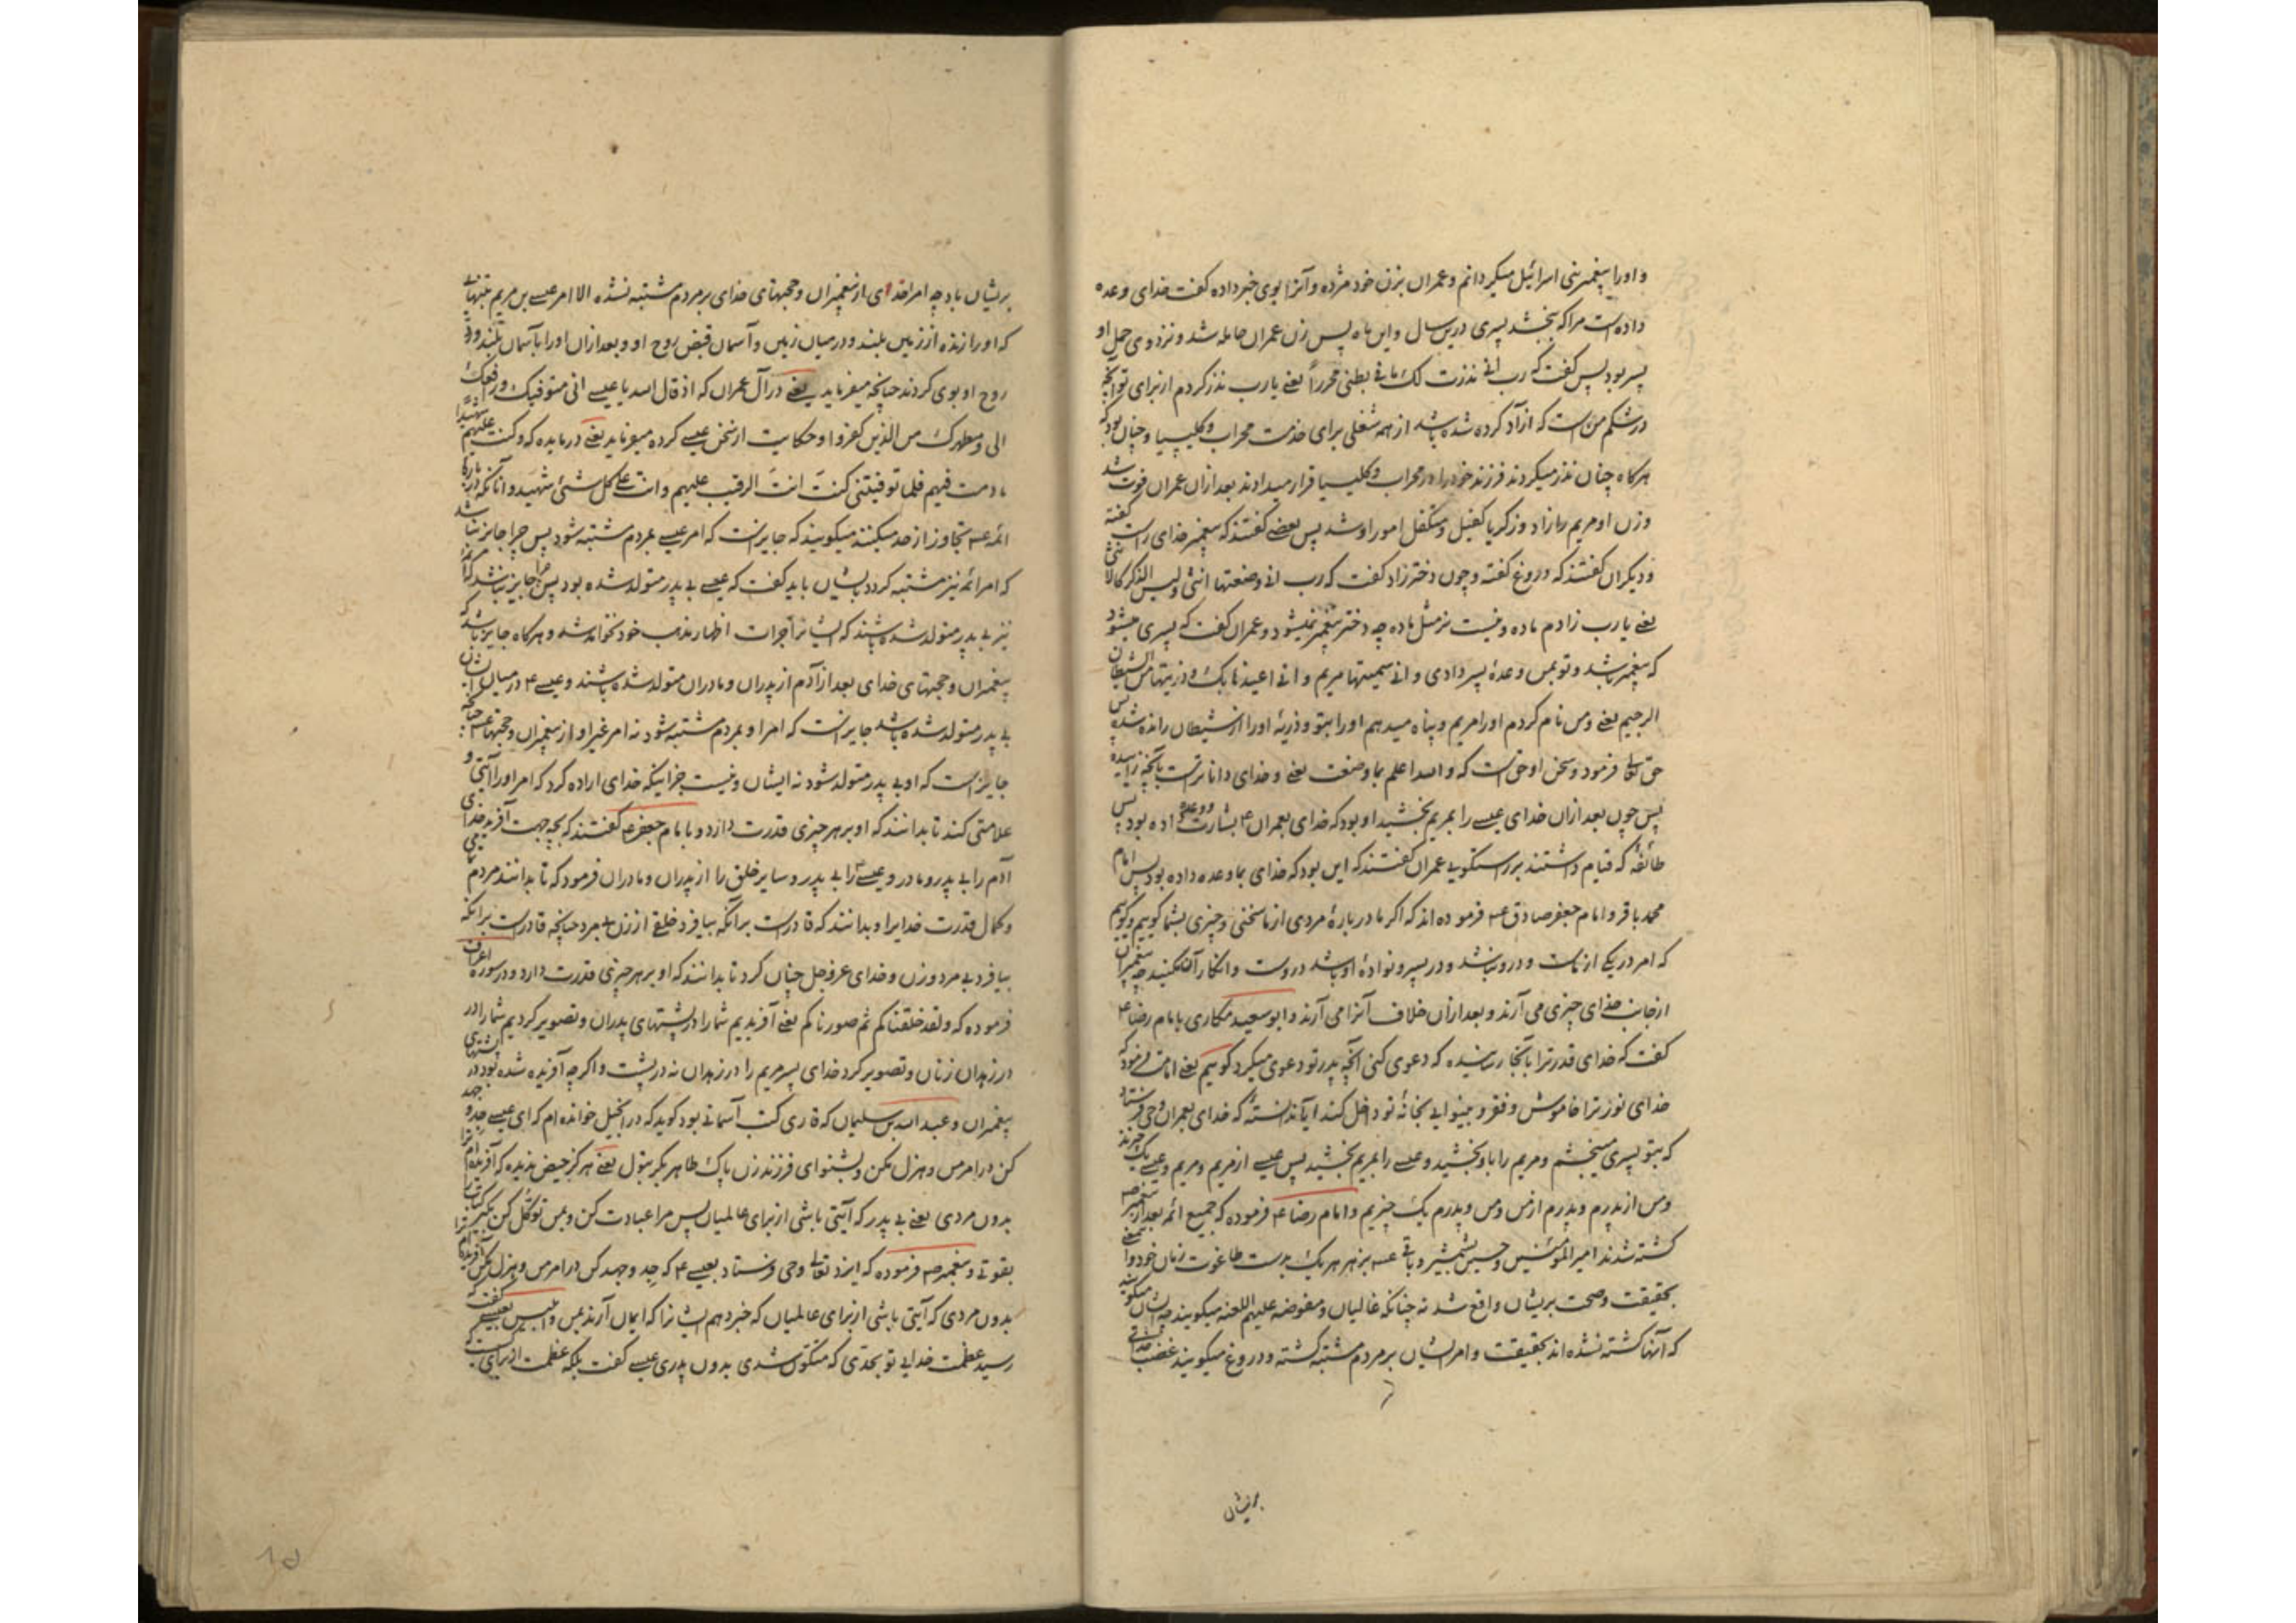 و او را پیغمبر بنی اسرائیل میکردانم و عمران بزن خود مژده و آنرا بوی خبر داده کفت خدای وعده
داده است مرا که بخشد پسری درین سال و این ماه پس زن عمران حامله شد و نزد وی حمل او
پسر بود پس کفت که رب انی نذرت لک ما فی بطنی محرراً یعنی یا رب نذر کردم از برای تو آنچه
در شکم من است که ازآد کرده شده باشد از همه شغلی برای خدمت محراب و کلیسیا و چنان بود که
هرکاه چنان نذر میکردند فرزند خود را در محراب و کلیسیا قرار میدادند بعد ازان عمران فوت شد
و زن او مریم را زاد و زکریا کفیل و متکفل امور او شد پس بعضی کفتند که پیغمبر خدای راست کفته
و دیکران کفتند که دروغ کفته و چون دختر زاد کفت که رب انی وضعتها انثی و لیس الذکر کالانثی
یعنی یا رب زادم ماده و نیست نر مثل ماده چه دختر پیغمبر نمیشود و عمران کفت که پسری میشود
که پیغمبر باشد و تو بمن وعدهٔ پسر دادی و انی سمیتها مریم و انی اعیذها بک و ذریتها من الشیطان
الرجیم یعنی و من نام کردم او را مریم و پناه میدهم او را بتو و ذریهٔ او را از شیطان رانده شده پس
حق تعالی فرمود و سخن او حق است که و الله اعلم بما وضعت یعنی و خدای داناترست بآنچه زاییده
پس چون بعد ازان خدای عیسی را بمریم بخشید او بود که خدای بعمران ع بشارت و وعده داده بود پس
طائفهٔ که قیام داشتند بر راستکویی عمران کفتند که این بود که خدای بما وعده داده بود پس امام
محمد باقر و امام جعفر صادق ع فرموده اند که اکر ما در بارهٔ مردی از ما سخنی و چیزی بشما کوییم و کوییم
که امر در یکی از ماست و درو نباشد و در پسر و نوادهٔ او باشد درست و انکار آن مکنید چه پیغمبران
از جانب خدای چیزی می آرند و بعد ازان خلاف آنرا می آرند و ابو سعید مکاری بامام رضا ع
کفت که خدای قدر ترا بآنجا رسانیده که دعوی کنی آنچه پدر تو دعوی میکرد کوییم یعنی امامت فرمود که
خدای نور ترا خاموش و فقر و بینوایی بخانهٔ تو داخل کند آیا ندانستهٔ که خدای بعمران وحی فرستاد
که بتو پسری میبخشم و مریم را باو بخشید و عیسی را بمریم بخشید پس عیسی از مریم و مریم و عیسی یک چیزند
و من از پدرم و پدرم از من و من و پدرم یک چیزیم و امام رضا ع فرموده که جمیع ائمه بعد از پیغمبر ص
کشته شدند امیر المؤمنین و حسین بشمشیر و باقی ع بزهر هر یک بدست طاغوت زمان خود و این
بحقیقت و صحت بریشان واقع شد نه چنانکه غالیان و مفوضه علیهم اللعنه میکویند چه ایشان میکویند
که آنها کشته نشده اند بحقیقت و امر ایشان بر مردم مشتبه کشته و دروغ میکویند غضب خدای
بریشان
بریشان باد چه امر احدی از پیغمبران و حجتهای خدای بر مردم مشتبه نشده الا امر عیسی بن مریم بتنهائی
که او را زنده از زمین بلند و در میان زمین و آسمان قبض روح او و بعد ازان او را بآسمان بلند و رد
روح او بوی کردند چنانچه میفرماید یعنی در آل عمران که اذ قال الله یا عیسی انی متوفیک و رافعک
الی و مطهرک من الذین کفروا و حکایت از سخن عیسی کرده میفرماید یعنی در مایده که و کنت علیهم شهیدا
ما دمت فیهم فلما توفیتنی کنت انت الرقیب علیهم و انت علی کل شئ شهید و آنانکه در بارهٔ
ائمه ع تجاوز از حد میکنند میکویند که جایز است که امر عیسی بمردم مشتبه شود پس چرا جایز نباشد
که امر ائمه نیز مشتبه کردد بایشان باید کفت که عیسی بی پدر متولد شده بود پس چرا جایز نباشد که
نیز بی پدر متولد شده باشند که ایشانرا جرات اظهار مذهب خود نخواهد شد و هرکاه جایز باشد که
پیغمبران و حجتهای خدای بعد از آدم از پدران و مادران متولد شده باشند و عیسی ع در میان ایشان
بی پدر متولد شده باشد جایز است که امر او بمردم مشتبه شود نه امر غیر او از پیغمبران و حجتها ع چنانچه
جایز است که او بی پدر متولد شود نه ایشان و نیست جز اینکه خدای اراده کرد که امر او را آیتی و
علامتی کند تا بدانند که او بر هر چیزی قدرت دارد و بامام جعفر ع کفتند که بچه جهت آفرید خدای
آدم را بی پدر و مادر و عیسی ع را بی پدر و سایر خلق را از پدران و مادران فرمود که تا بدانند مردم
و کمال قدرت خدایرا و بدانند که قادرست برآنکه بیافرد خلقی از زن بی مرد چنانچه قادرست برآنکه
بیافرد بی مرد و زن و خدای عز و جل چنان کرد تا بدانند که او بر هر چیزی قدرت دارد و در سوره اعراف
فرموده که و لقد خلقناکم ثم صورناکم یعنی آفریدیم شما را در پشتهای پدران و تصویر کردیم شما را در
در زهدان زنان و تصویر کرد خدای پسر مریم را در زهدان نه در پشت و اکرچه آفریده شده بود در پشتهای
پیغمبران و عبد الله بن سلیمان که قاری کتب آسمانی بود کوید که در انجیل خوانده ام که ای عیسی جد و جهد
کن در امر من و هزل مکن و بشنو ای فرزند زن پاک طاهر بکر بتول یعنی هرکز حیض ندیده که آفریده ام ترا
بدون مردی یعنی بی پدر که آیتی باشی از برای عالمیان پس مرا عبادت کن و بمن توکل کن بکیر کتاب را
بقوتی و پیغمبر ص فرموده که ایزد تعالی وحی فرستاد بعیسی ع که جد و جهد کن در امر من و هزل مکن آفریده ام ترا
بدون مردی که آیتی باشی از برای عالمیان که خبر دهم ایشانرا که ایمان آرند بمن و ابلیس بعیسی کفت که
رسید عظمت خدایی تو بحدی که متکون شدی بدون پدری عیسی کفت بلکه عظمت از برای